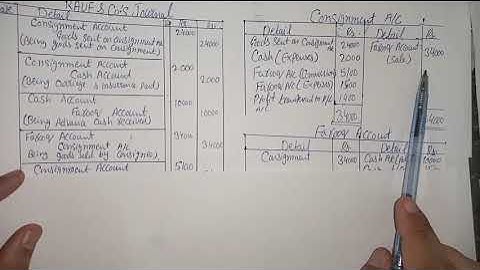 RAUF & Co's Journal
Detail Rs. Rs.
Consignment Account 24000
Goods sent on Consignment A/c 24000
(Being goods sent on consignment)
Consignment Account 2000
Cash Account 2000
(Being Cartage & insurance paid)
Cash Account 10000
Farooq Account 10000
(Being Advance Cash received)
Farooq Account 34000
Consignment A/C 34000
Being goods sold by Consignee)
Consignment Account 5100
Consignment A/C
Detail Rs. Detail Rs.
Goods sent on Consignment 24000 Farooq Account 34000
Cash (Expenses) 2000 (Sale)
Farooq A/c (Commission) 5100
Farooq A/c (Expenses)
Profit transferred to P/L
A/c 34000
Farooq Account
Detail Rs. Detail Rs.
Consignment 34000 Cash A/c